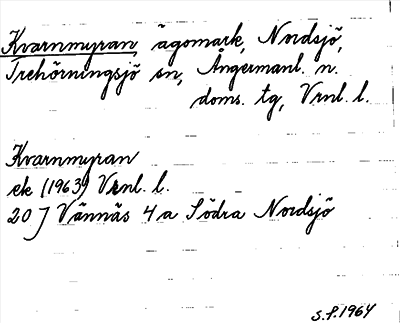 Kvarnmyran, ägomark, Nordsjö,
Trehörningsjö sn, Ångermanl. n.
doms. tg, Vrnl. l.
Kvarnmyran
ek (1963) Vrnl. l.
20J Vännäs 4a Södra Nordsjö
S.P. 1964